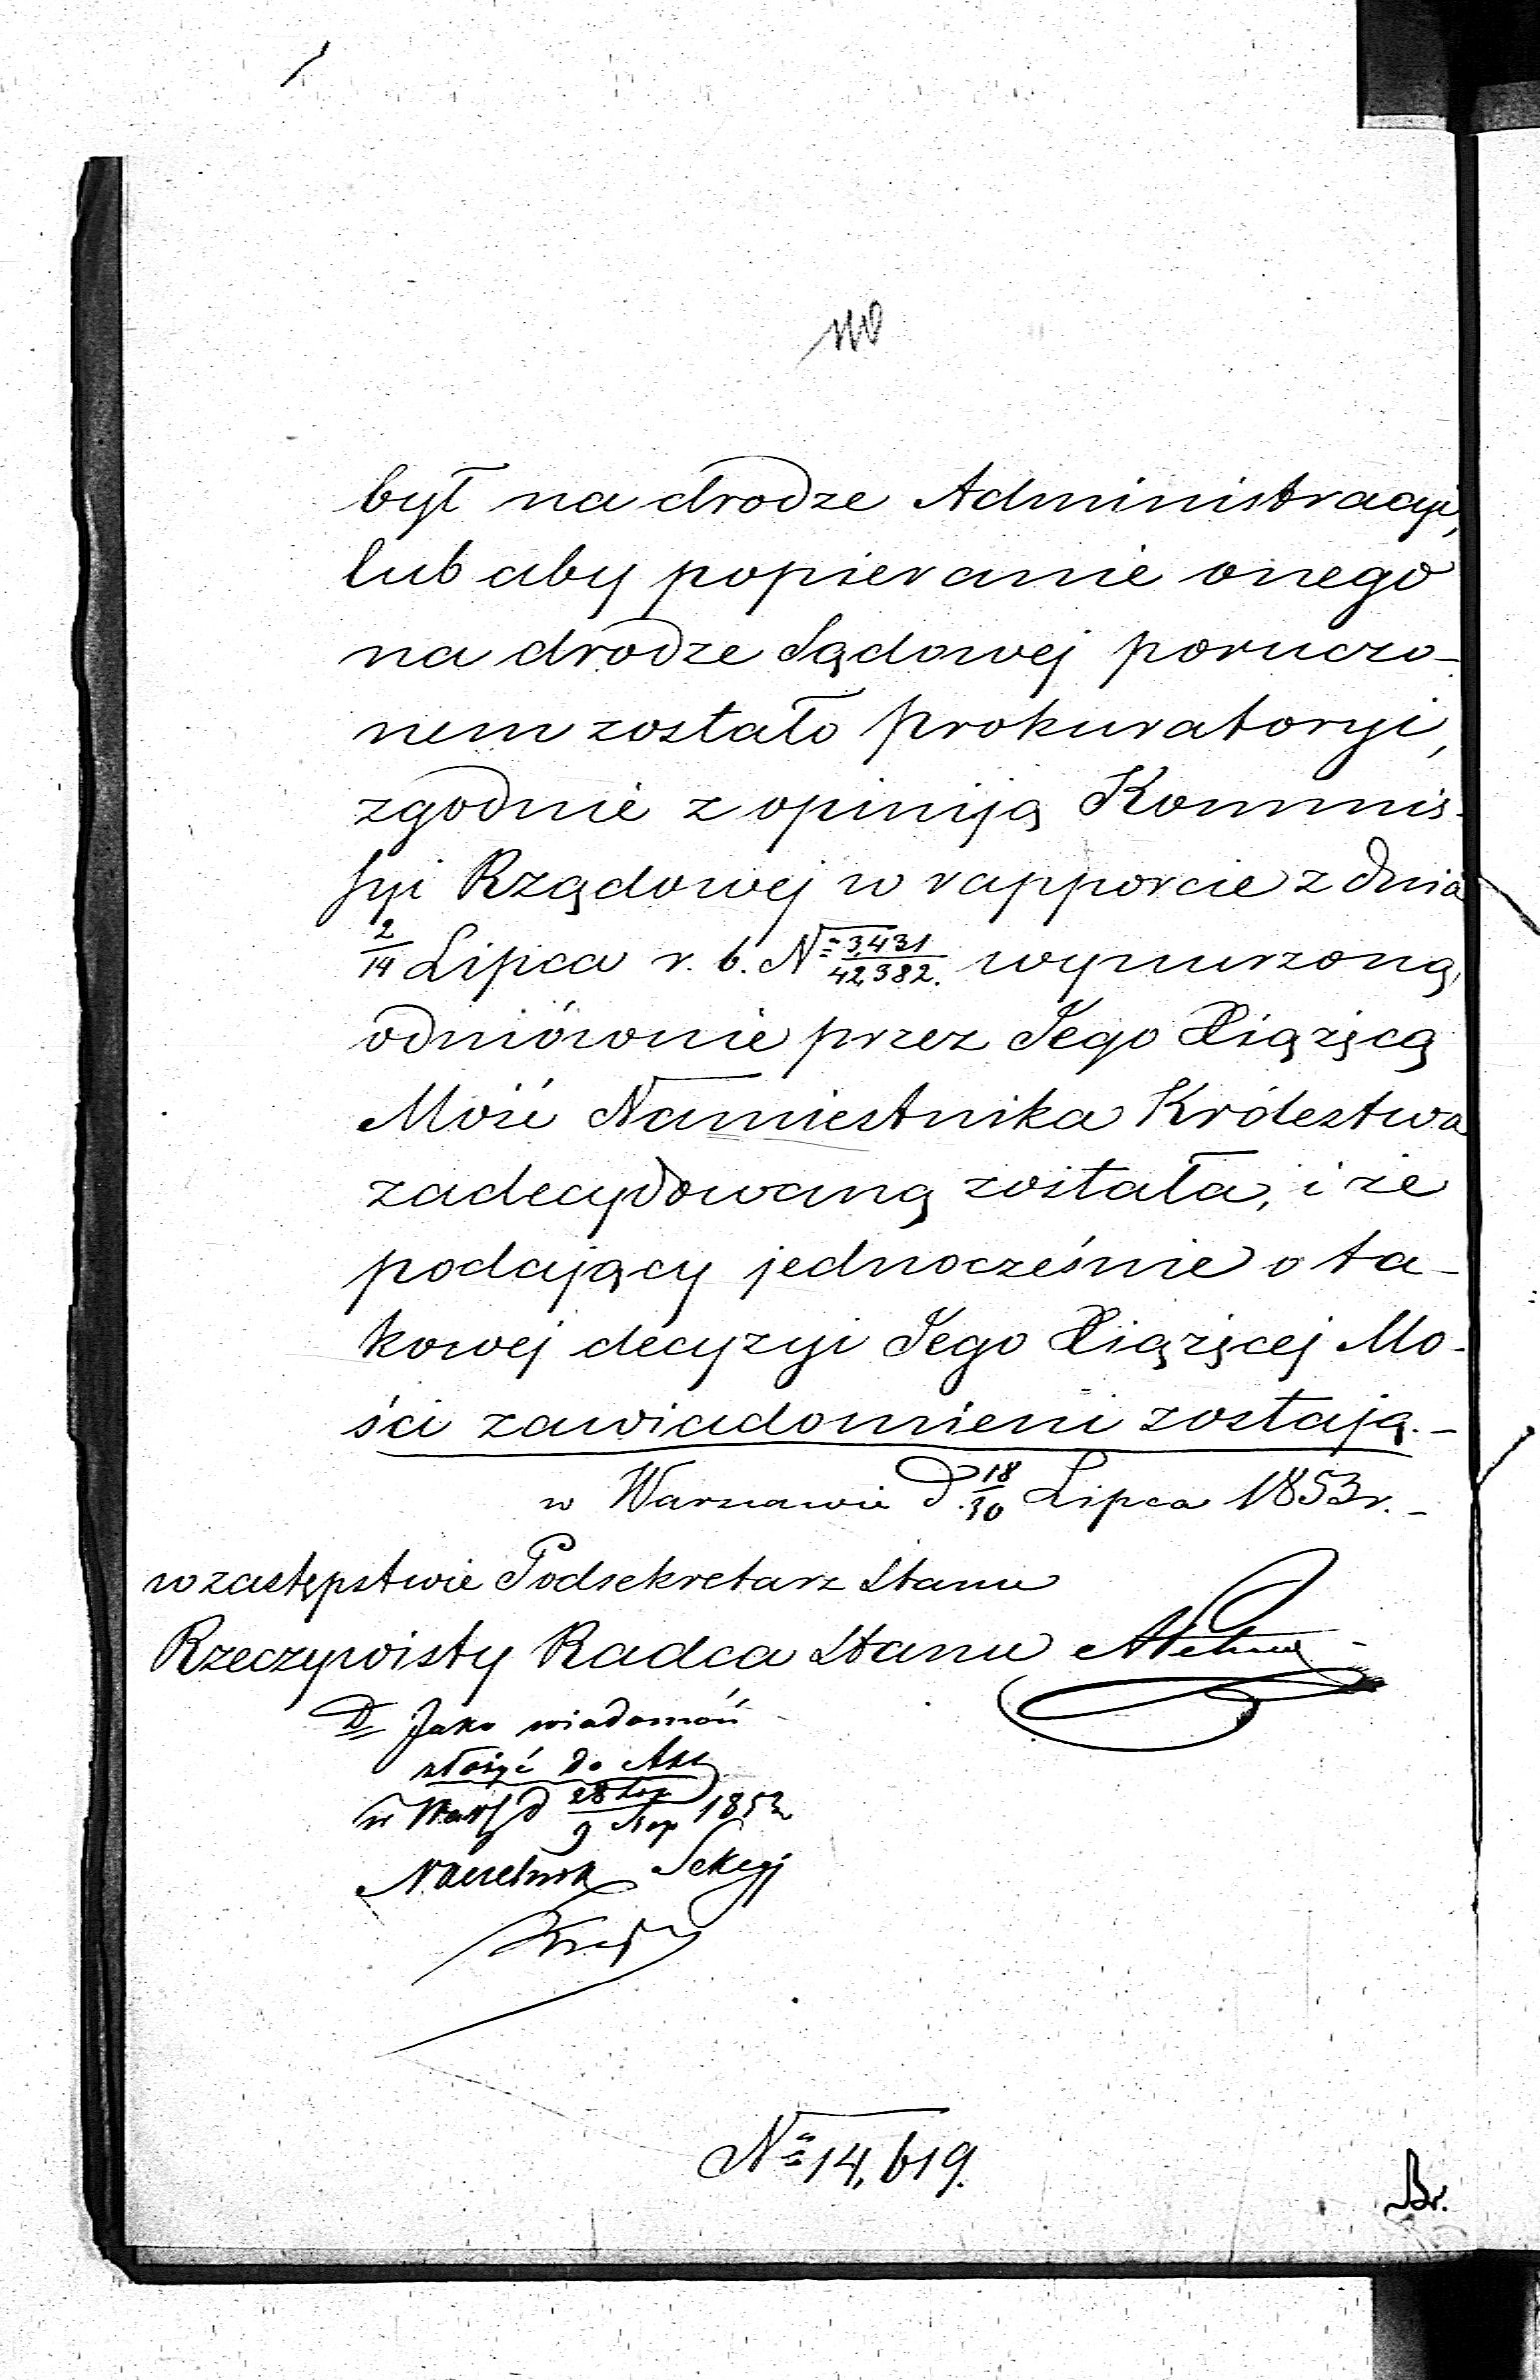 był na drodze Administracyi,
lub aby popieranie onego
na drodze Sądowej poruczo-
nem zostało Prokuratoryi,
zgodnie z opiniją Kommis-
syi Rządowej w rapporcie z dnia
2/14 Lipca r. b. № 3,431/42,382. wynurzoną,
odmównie przez Jego Xiążęcą
Mość Namiestnika Królestwa
zadecydowaną została, i że
podający jednocześnie o ta-
kowej decyzyi Jego Xiążęcej Mo-
ści zawiadomieni zostają.-
w Warszawie d. 18/30 Lipca 1853 r.-
w zastępstwie Podsekretarz Stanu
Rzeczywisty Radca Stanu
D Jako wiadomość
złożyć do Akt
w Wars d 28 Lip/9 Sierp 1853
Naczelnik Sekcyj
№ 14,619.
Br.